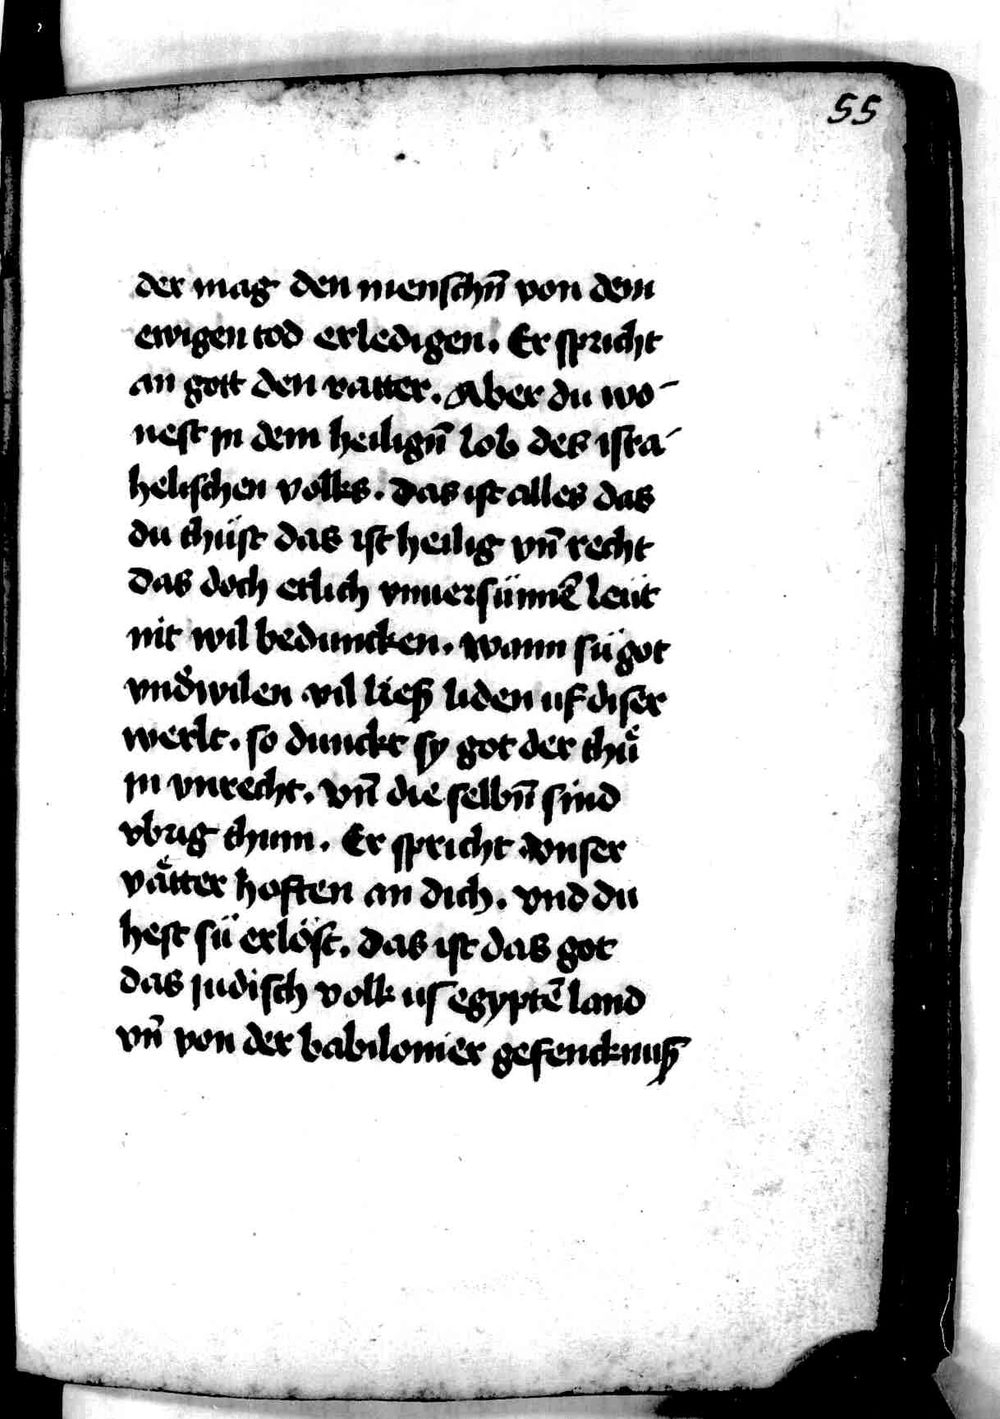 55
der mag den menschn̄ von dem
ewigen tod erledigen. Er spricht
an gott den vatter. Aber du wo-
nest in dem heilign̄ lob des isra-
helischen volks. Das ist alles das
du thüst das ist heilig vn̄ recht
das doch etlich vnuersünnē leüt
nit wil beduncken. wann sü got
vnderwilen vil lieſz liden uf diser
werlt. so dunckt sy got der thuͤ
in vnrecht. vn̄ die selbn̄ sind
vbrig thum. Er spricht vnser
vaͤtter hoften an dich. vnd du
hest sü erlöst. Das ist das got
das judisch volk us egyptē land
vn̄ von der babilonier gefencknuſz